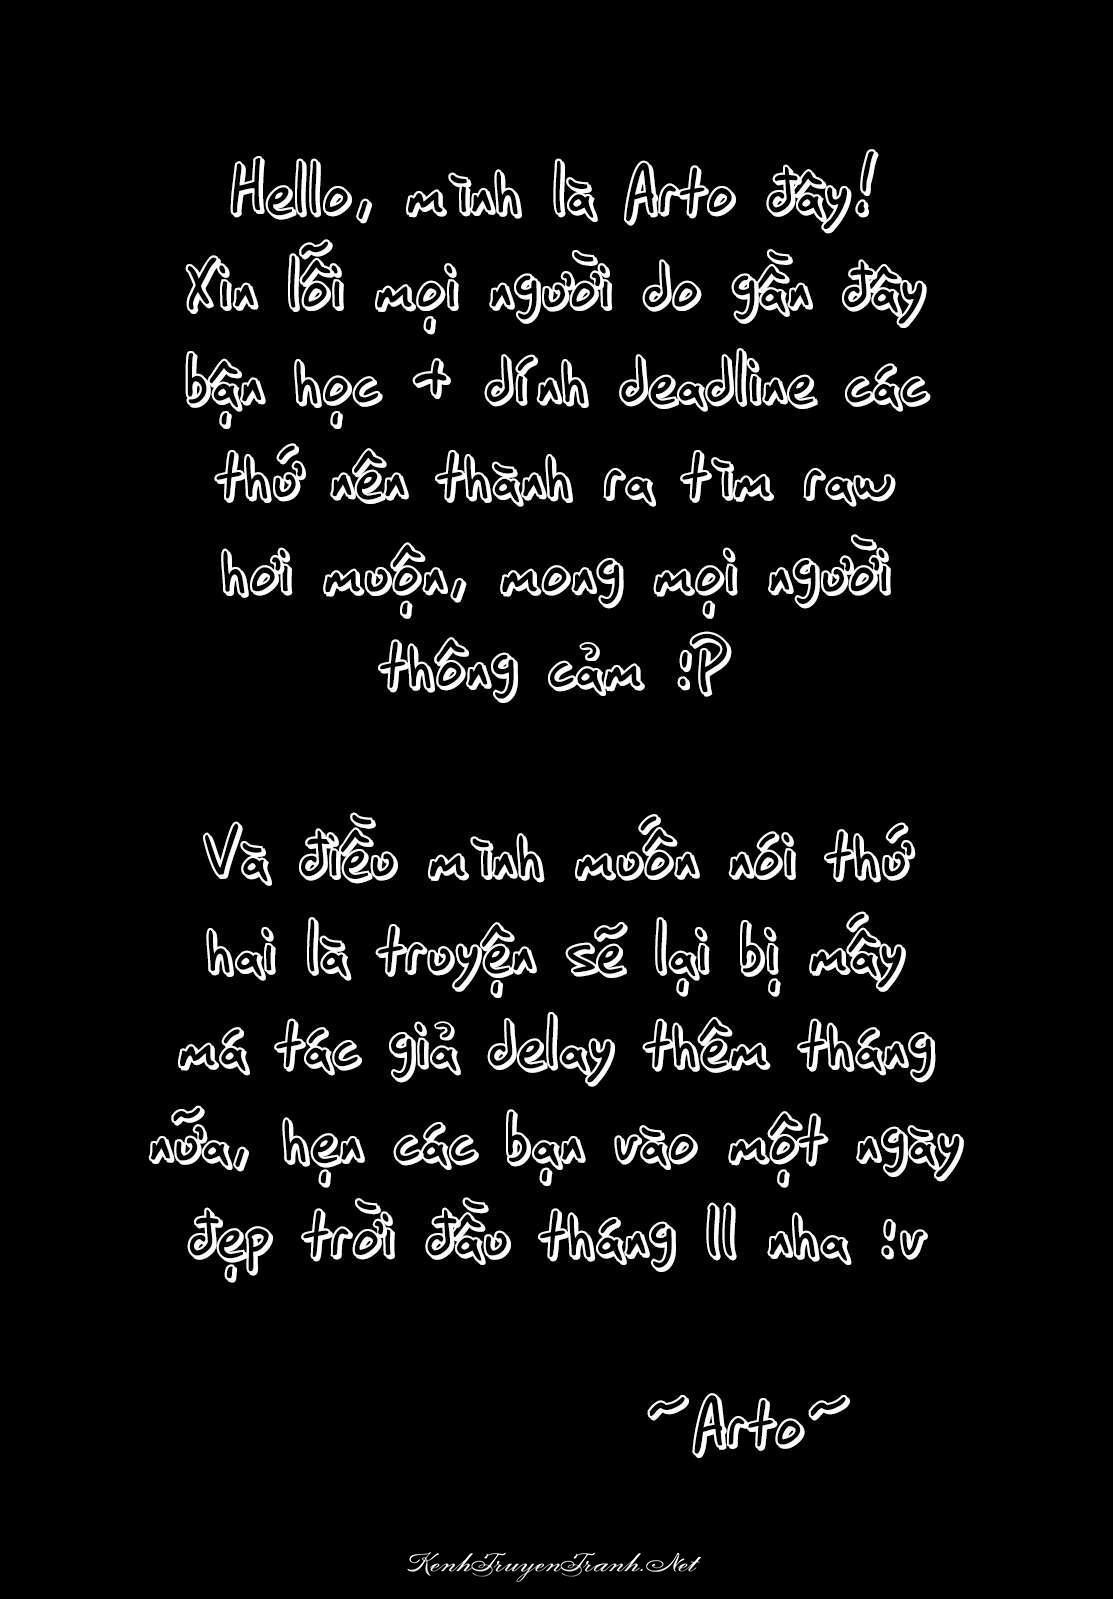 Hello, mình là Arto đây!
Xin lỗi mọi người do gần đây
bận học + dính deadline các
thứ nên thành ra tìm raw
hơi muộn, mong mọi người
thông cảm :P
Và điều mình muốn nói thứ
hai là truyện sẽ lại bị mấy
má tác giả delay thêm tháng
nữa, hẹn các bạn vào một ngày
đẹp trời đầu tháng 11 nha :v
~Arto~
KenhTruyenTranh.Net